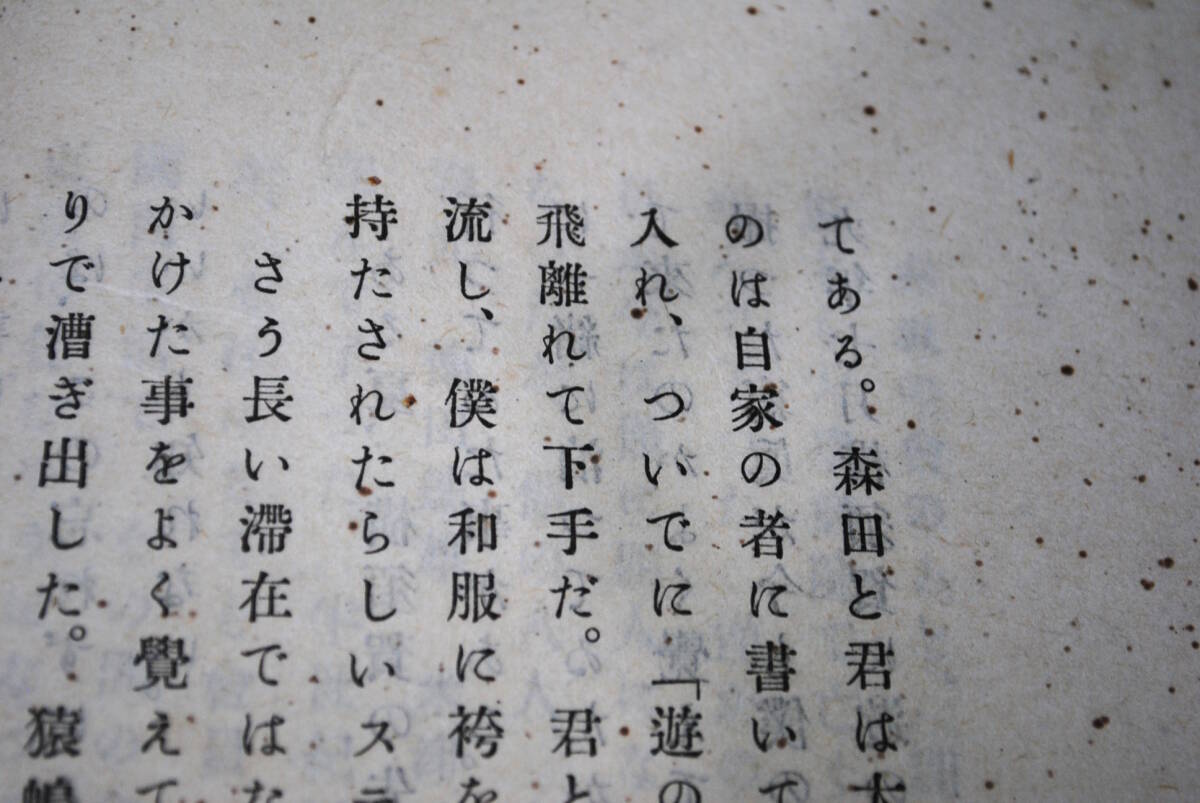 てある。森田と君は大
のは自家の者に書いて
入れ、ついでに「遊の
飛離れて下手だ。君と
流し、僕は和服に袴を
持たされたらしいステ
さう長い滯在ではな
かけた事をよく覺えて
りで漕ぎ出した。猿嶋